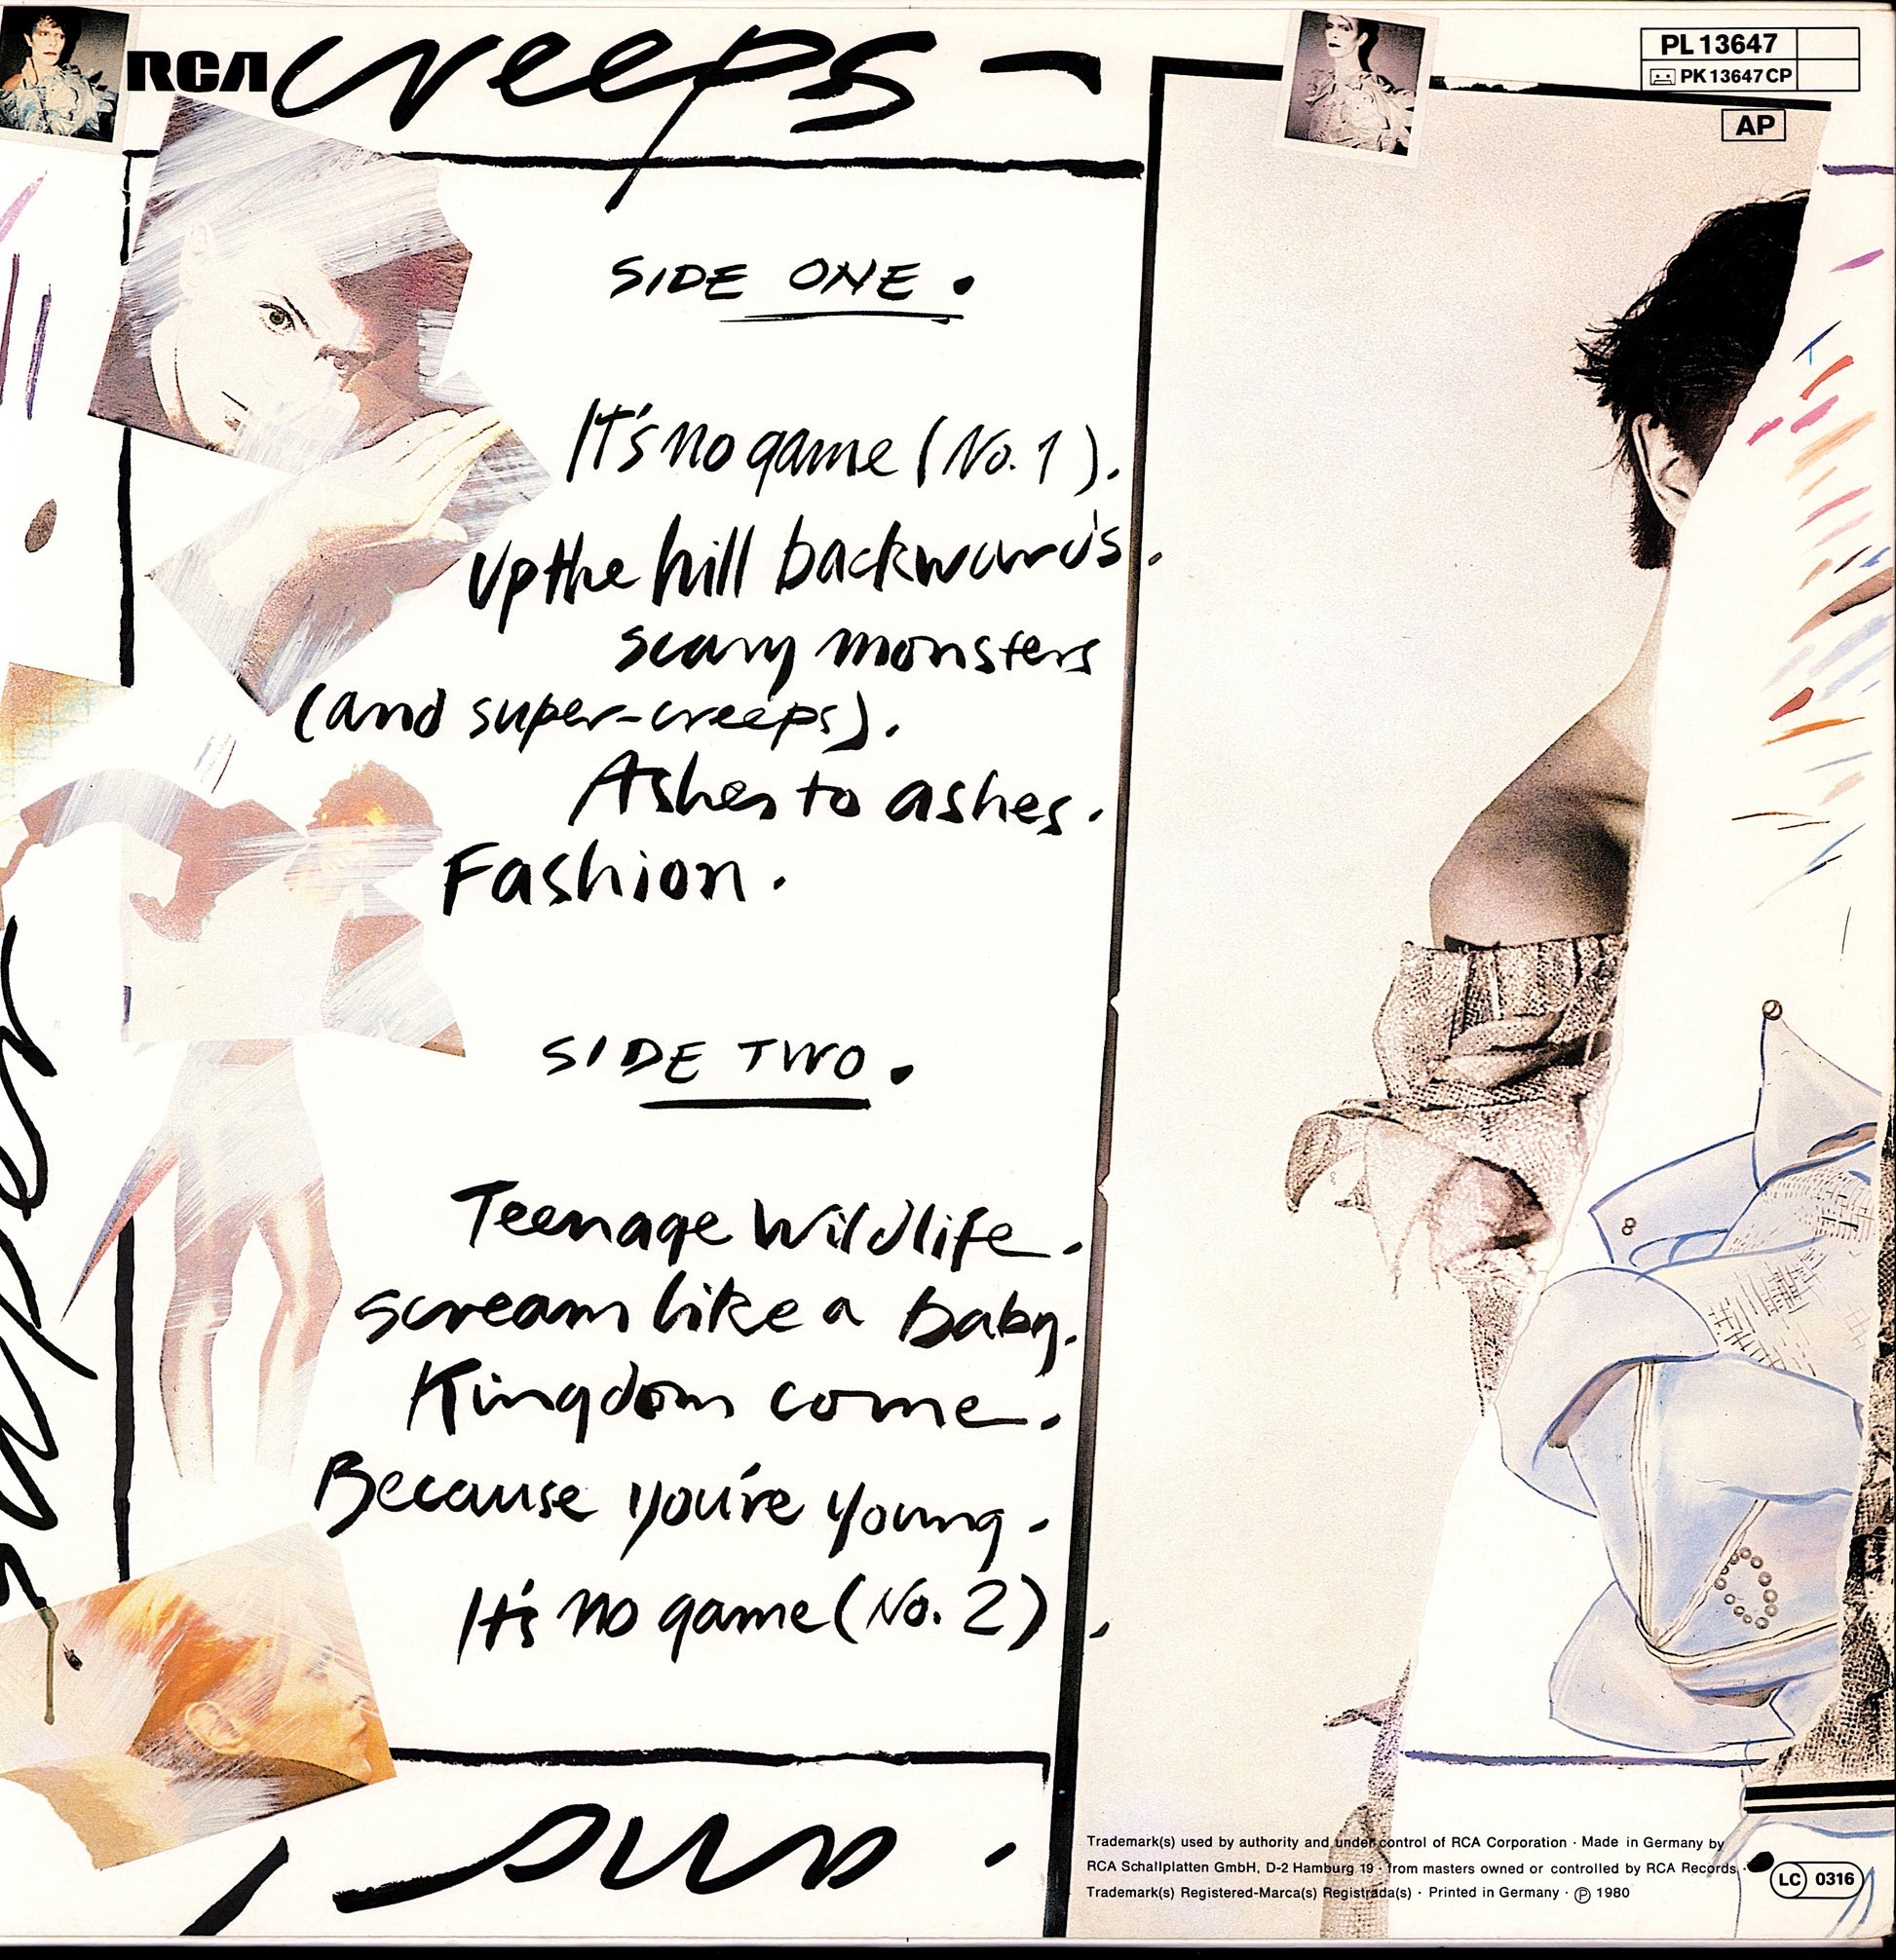 RCA creeps -
PL 13647
PK 13647 CP
AP
SIDE ONE.
It's no game (No. 1).
Up the hill backwards.
scary monsters
(and super-creeps).
Ashes to ashes.
Fashion.
SIDE TWO.
Teenage Wildlife.
scream like a baby.
Kingdom come.
Because you're young.
It's no game (No. 2).
super
and
Trademark(s) used by authority and under control of RCA Corporation · Made in Germany by
RCA Schallplatten GmbH, D-2 Hamburg 19 · from masters owned or controlled by RCA Records ·
Trademark(s) Registered-Marca(s) Registrada(s) · Printed in Germany · ℗ 1980
LC 0316